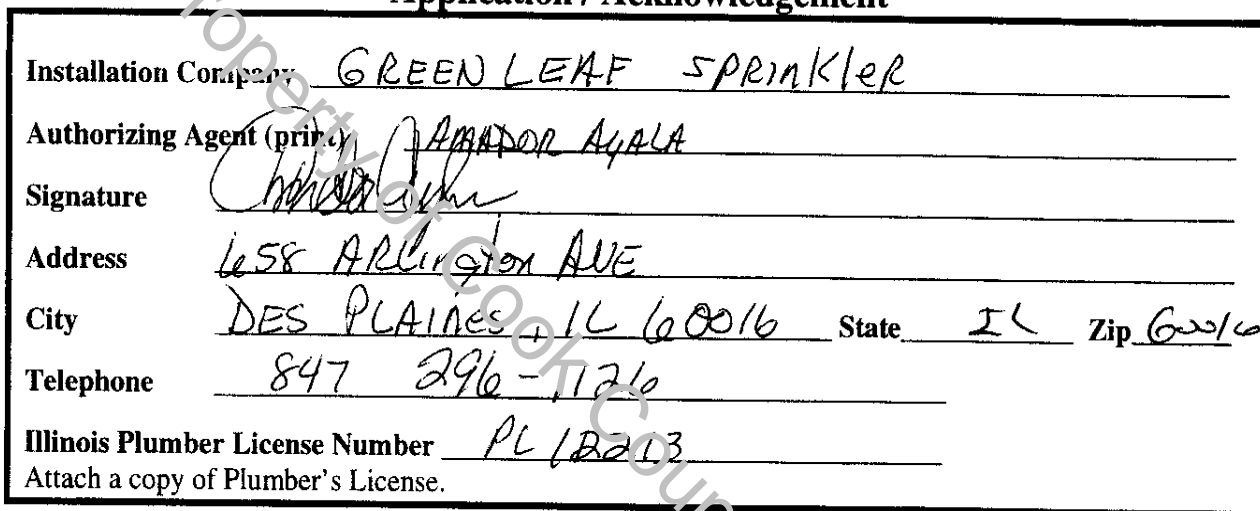 Application / Acknowledgement
Installation Company GREEN LEAF SPRINKleR
Authorizing Agent (print) AMADOR AYALA
Signature
Address 658 ARLington AVE
City DES PLAINes, IL 60016 State IL Zip 60016
Telephone 847 296-1126
Illinois Plumber License Number PL 12213
Attach a copy of Plumber's License.
Property of Cook Coun